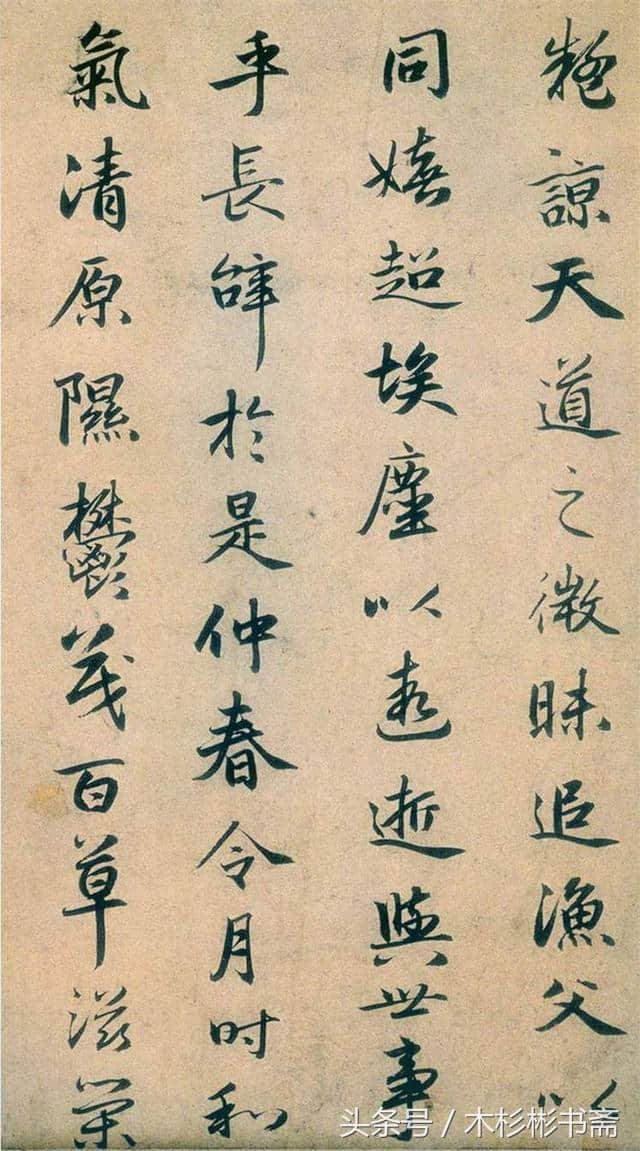 疑諒天道之微昧追漁父以
同嬉超埃塵以遐逝與世事
乎長辭於是仲春令月時和
氣清原隰鬱茂百草滋榮
头条号／木杉彬书斋